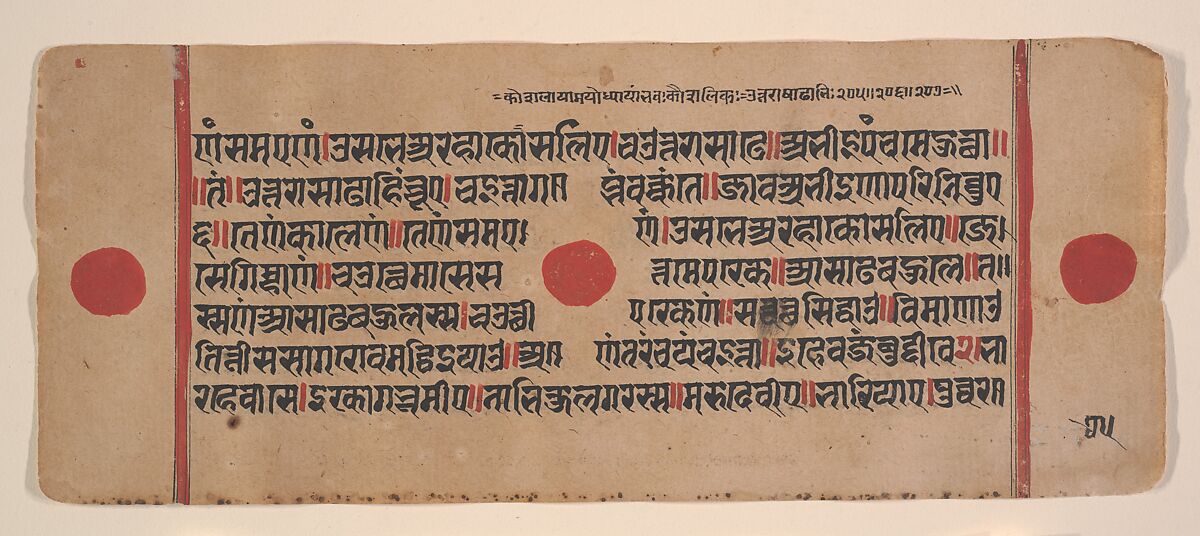 =कोशलायामयोध्यायां भवः कौशलिकः=उत्तराषाढाभिः २०५॥२०६॥२०७=॥
णं समएणं।उसभेणं अरहा कोसलिए।चउउत्तरासाढे॥अभीइपंचमे हुत्था॥
॥तं॥उत्तरासाढाहिं चुए।चइत्ता गब्भं वक्कंते॥जाव अभीइणा परिनिव्वुए
६॥तेणं कालेणं॥तेणं समएणं।उसभेणं अरहा कोसलिए॥जे
से गिम्हाणं॥चउत्थे मासे सत्तमे पक्खे॥आसाढबहुले॥त
स्सणं आसाढबहुलस्स।चउत्थीपक्खेणं॥सव्वट्ठसिद्धाउ॥विमाणाउ
तित्तीससागरोवमट्ठिइयाउ॥अणंतरं चयं चइत्ता॥इहेव जंबुद्दीवे २ भा
रहे वासे।इक्खागभूमीए॥नाभिकुलगरस्स॥मरुदेवीए॥भारियाए।पुव्वरत्ता